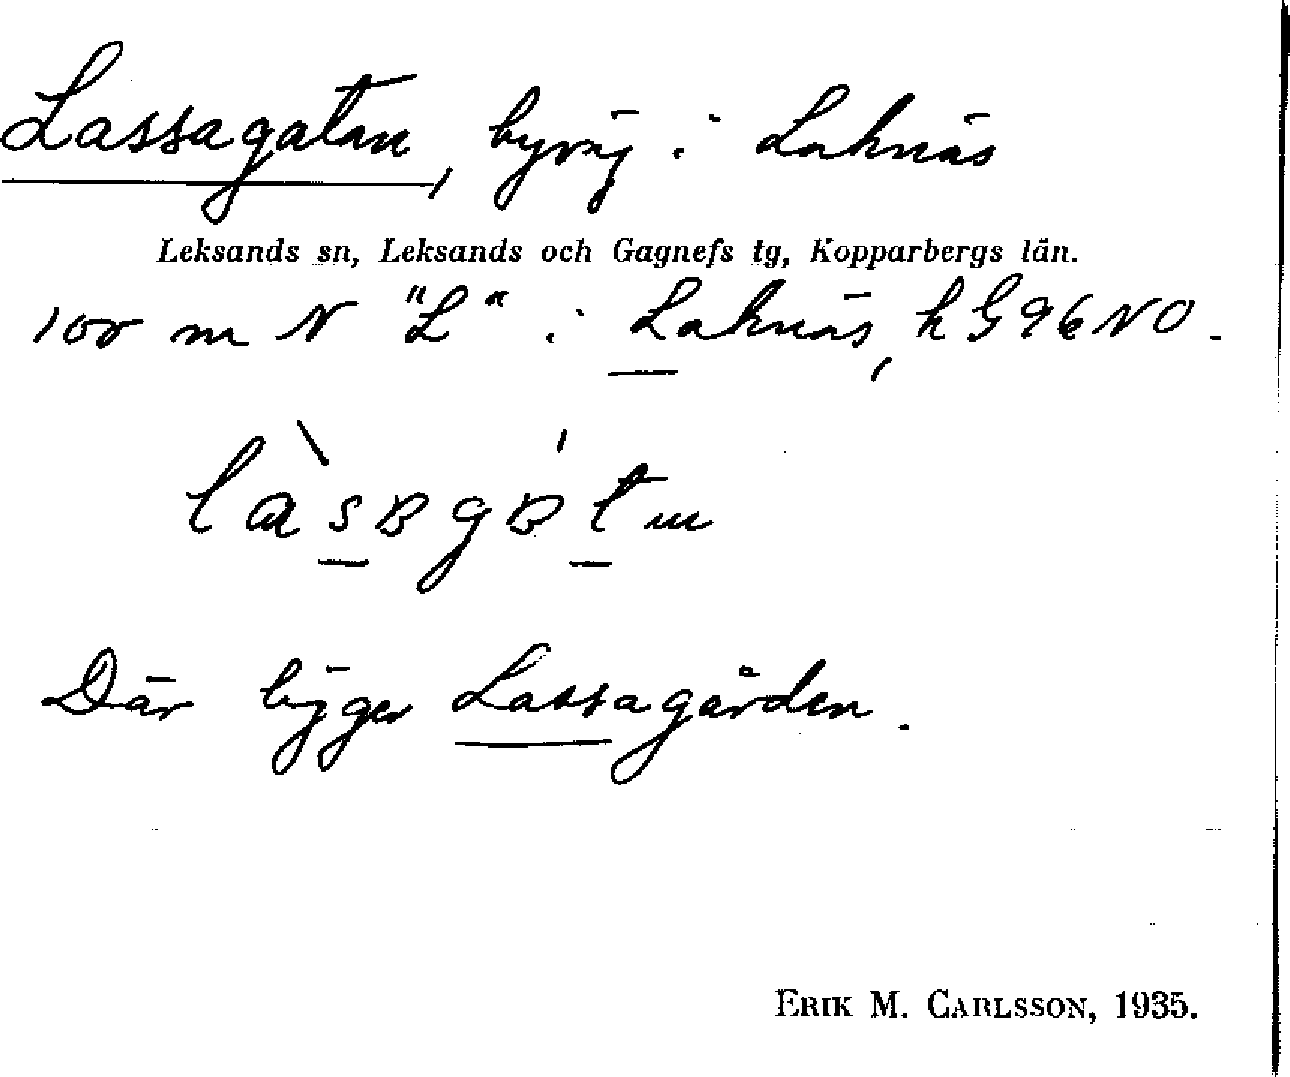 Lassagatan, byväg i Laknäs
Leksands sn, Leksands och Gagnefs tg, Kopparbergs län.
100 m N "L" i Laknäs, h G 96 NO.
Där ligger Lassagården.
ERIK M. CARLSSON, 1935.